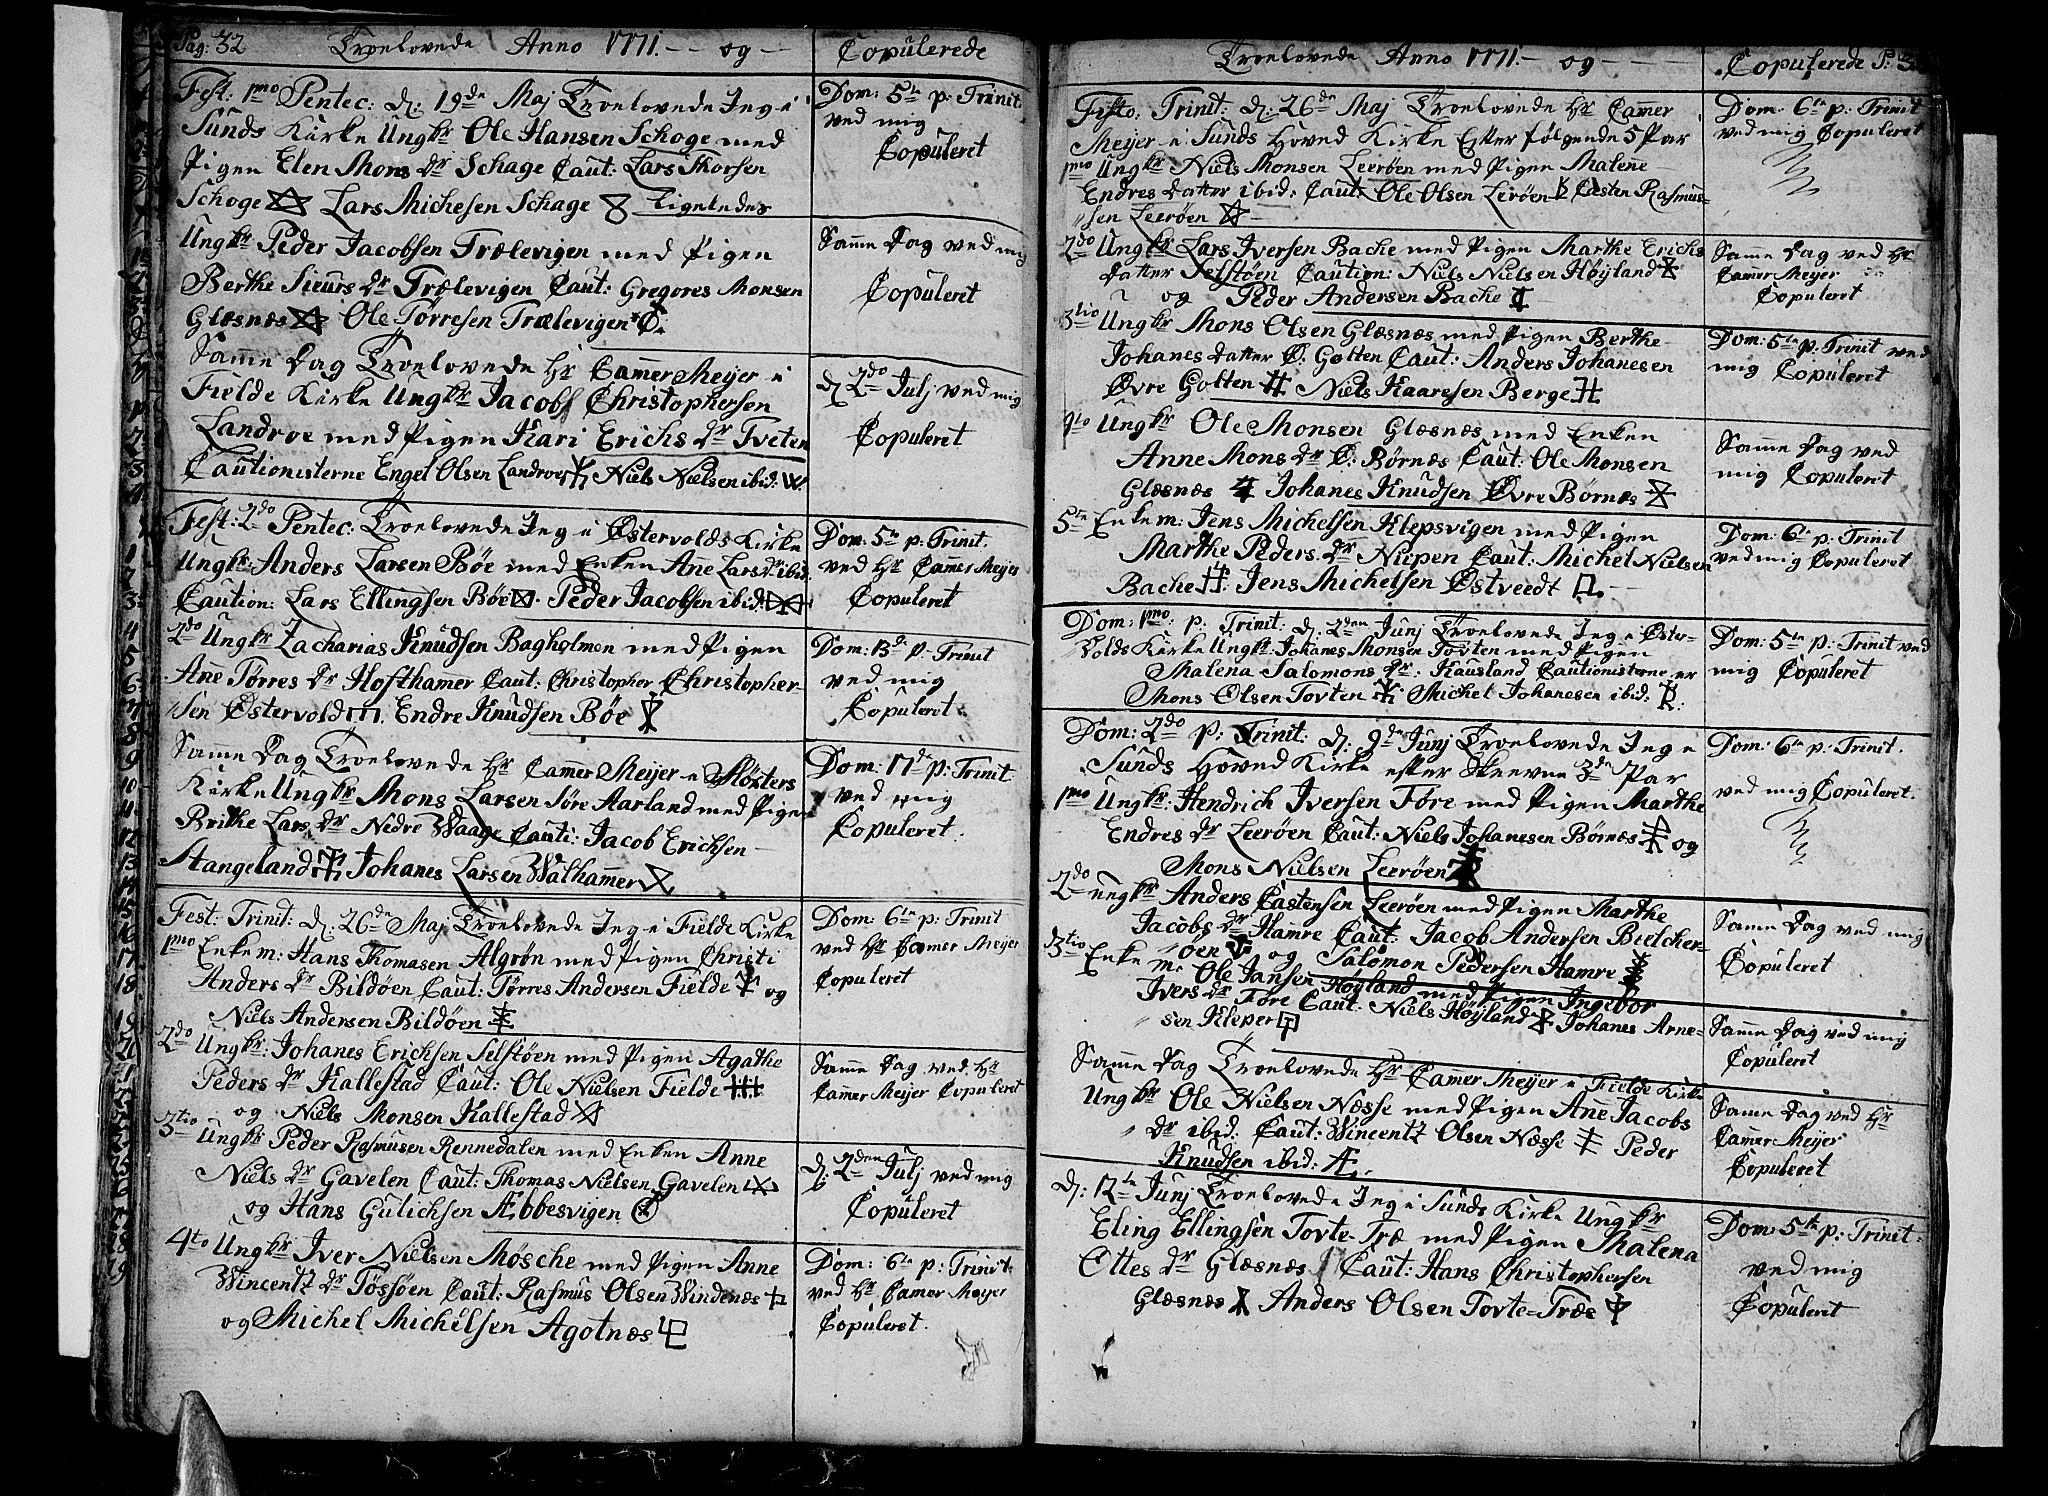 Pag: 32 Troelovede Anno 1771. — og — Copulerede
Fest: 1mo Pentec: d: 19de Maj Troelovede Jeg i
Sunds Kirke Ungkr Ole Hansen Schoge med
Pigen Elen Mons dr Schage Caut: Lars Thorsen
Schoge Lars Michesen Schage Ligeledes
Dom: 5te p: Trinit.
ved mig
Copuleret
Ungkr Peder Jacobsen Trælevigen med Pigen
Berthe Siurs dr Trælevigen Caut: Gregores Monsen
Glæsnæs Ole Tørresen Trælevigen
Samme Dag ved mig
Copuleret
Samme Dag Troelovede Hr Camer Meijer i
Fielde Kirke Ungkr Jacob Christophersen
Landroe med Pigen Kari Erichs dr Tveten
Cautionisterne Engel Olsen Landroe Niels Nielsen ibid:
d: 2do Julj ved mig
Copuleret
Fest: 2do Pentec: Troelovede Jeg i Østervolds Kirke
Ungkr: Anders Larsen Bøe med Enken Ane Lars dr ibid:
Caution: Lars Ellingsen Bøe Peder Jacobsen ibid:
Dom: 5te p: Trinit.
ved Hr Camer Meijer
Copuleret
2do Ungkr Zacharias Knudsen Bagholmen med Pigen
Ane Tørres dr Hofthamer Caut: Christopher Christopher-
sen Østervold Endre Knudsen Bøe
Dom: 13de p: Trinit
ved mig
Copuleret.
Same Dag Troelovede Hr Camer Meijer i Møsters
Kirke Ungkr Mons Larsen Søre Aarland med Pigen
Brithe Lars dr Nedre Waage Caut: Jacob Erichsen
Stangeland Johanes Larsen Walhamer
Dom: 17de p: Trinit.
ved mig
Copuleret.
Fest: Trinit: d: 26de Maj Troelovede Jeg i Fielde Kirke
1mo Enkem: Hans Thomasen Algrøn med Pigen Christi
Anders dr Bildøen Caut: Tørres Andersen Fielde og
Niels Andersen Bildøen
Dom: 6te p: Trinit
ved Hr Camer Meijer
Copuleret
2do Ungkr: Johanes Erichsen Selstøen med Pigen Agathe
Peders dr Kallestad Caut: Ole Nielsen Fielde
og Niels Monsen Kallestad
Samme Dag ved Hr
Camer Meijer Copuleret
3tio Ungkr Peder Rasmusen Rennedalen med Enken Anne
Niels dr Gavelen Caut: Thomas Nielsen Gavelen
og Hans Gulichsen Æbbesvigen
d: 2den Julj ved mig
Copuleret
4to Ungkr Iver Nielsen Møsche med Pigen Anne
Wincentz dr Tøssøen Caut: Rasmus Olsen Windenæs
og Michel Michelsen Agotnæs
Dom: 6te p: Trinit.
ved Hr Camer Meijer
Copuleret.
Troelovede Anno 1771. — og — Copulerede P: 3
Festo: Trinit: d: 26de Maj Troelovede Hr Camer
Meijer i Sunds Hoved Kirke Efter følgende 5 Par
1mo Ungkr Niels Monsen Leerøen med Pigen Malene
Endres datter ibid: Caut: Ole Olsen Lerøen Casten Rasmus-
sen Leerøen
Dom: 6te p: Trinit
ved mig Copuleret
2do Ungkr Lars Iversen Bache med Pigen Marthe Erichs
datter Selstøen Caution: Niels Nielsen Høyland
og Peder Andersen Bache
Samme Dag ved Hr
Camer Meijer
Copuleret
3tio Ungkr Mons Olsen Glæsnæs med Pigen Berthe
Johanes datter Ø. Golten Caut: Anders Johanesen
Øvre Golten Niels Haaresen Berge
Dom: 5te p: Trinit ved
mig Copuleret
4to Ungkr Ole Monsen Glæsnæs med Enken
Anne Mons dr Ø: Børnæs Caut: Ole Monsen
Glæsnæs Johanes Knudsen Øvre Børnæs
Samme Dag ved
mig Copuleret
5te Enkem: Jens Michelsen Klepsvigen med Pigen
Marthe Peders dr Nupen Caut: Michel Nielsen
Bache Jens Michelsen Østveedt
Dom: 6te p: Trinit
ved mig Copuleret
Dom: 1mo: p: Trinit: d: 2den Junj Troelovede Jeg i Øster-
volds Kirke Ungkr Johanes Monsen Tovten med Pigen
Malena Salomons dr: Kausland Cautionisterne er
Mons Olsen Tovten Michel Johanesen ibid:
Dom: 5te p: Trinit ved
mig Copuleret
Dom: 2do p: Trinit: d: 9de Junj Troelovede Jeg i
Sunds Hoved Kirke efter Skrevne 3de Par
1mo Ungkr: Hendrich Iversen Føre med Pigen Marthe
Endres dr Leerøen Caut: Niels Johanesen Børnæs og
Mons Nielsen Leerøen
Dom: 6te p: Trinit.
ved mig Copuleret.
2do Ungkr Anders Castensen Leerøen med Pigen Marthe
Jacobs dr Hamre Caut: Jacob Andersen Bielcher-
øen og Salomon Pedersen Hamre
Samme Dag ved mig
Copuleret
3tio Enke m: Ole Jansen Høyland med Pigen Ingebor
Ivers dr Føre Caut: Niels Høyland Johanes Arne-
sen Kleper
Samme Dag ved mig
Copuleret
Samme Dag Troelovede Hr Camer Meijer i Fielde Kirke
Ungkr Ole Nielsen Næsse med Pigen Ane Jacobs
dr ibid: Caut: Wincentz Olsen Næsse Peder
Knudsen ibid: Æ.
Samme Dag ved Hr
Camer Meijer
Copuleret
d: 12te Junj Troelovede Jeg i Sunds Kirke Ungkr
Eling Ellingsen Tovte-Træ med Pigen Malena
Ottes dr Glæsnæs Caut: Hans Christophersen
Glæsnæs Anders Olsen Tovte-Træe
Dom: 5te p: Trinit.
ved mig
Copuleret